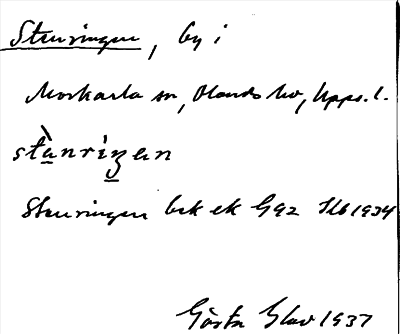 Stenringen, by i
Morkarla sn, Olands hd, Upps. l.
stànriŋan
Stenringen bek ek G92 Ilb 1934
Gösta 1937